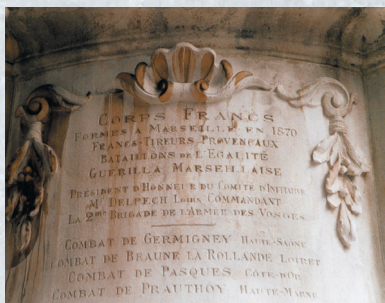 CORPS FRANCS
FORMÉS A MARSEILLE EN 1870
FRANCS-TIREURS PROVENÇAUX
BATAILLONS DE L'EGALITÉ
GUERILLA MARSEILLAISE
PRÉSIDENT D'HONNEUR DU COMITÉ D'INITIATIVE
MR DELPECH LOUIS COMMANDANT
LA 2ME BRIGADE DE L'ARMÉE DES VOSGES
COMBAT DE GERMIGNEY HAUTE-SAONE
COMBAT DE BEAUNE LA ROLLANDE LOIRET
COMBAT DE PASQUES CÔTE-D'OR
COMBAT DE PRAUTHOY HAUTE-MARNE